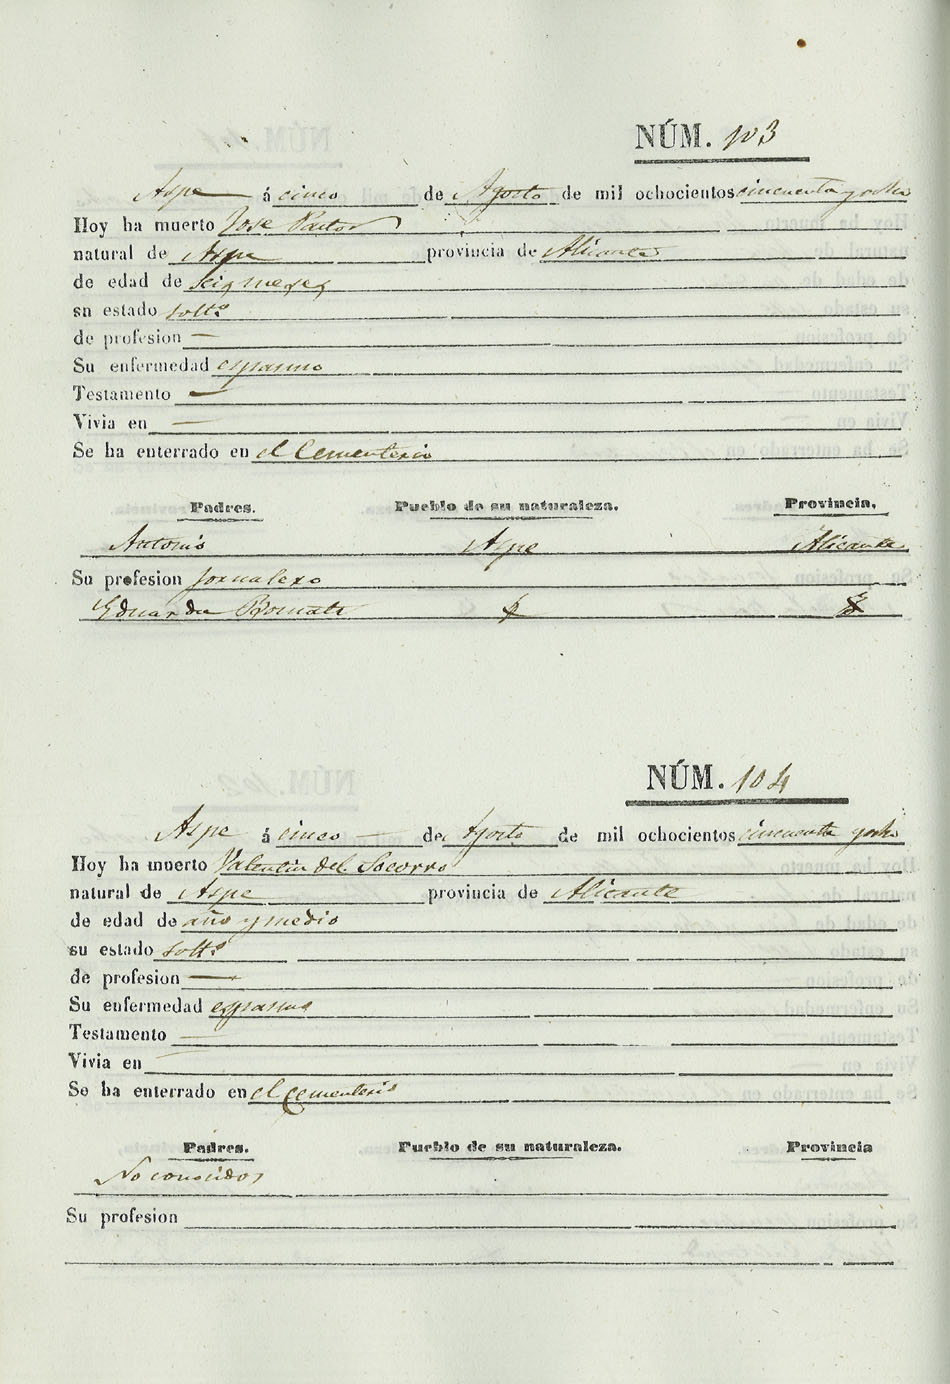 NÚM. 103
Aspe á cinco de Agosto de mil ochocientos cincuenta y ocho
Hoy ha muerto Jose Pastor
natural de Aspe provincia de Alicante
de edad de seis meses
sn estado solt.º
de profesion —
Su enfermedad espasmo
Testamento —
Vivia en —
Se ha enterrado en el Cementerio
Padres. Pueblo de su naturaleza. Provincia.
Antonio Aspe Alicante
Su profesion Jornalero
Eduarda
NÚM. 104
Aspe á cinco — de Agosto de mil ochocientos cincuenta y ocho
Hoy ha muerto Valentin del Socorro
natural de Aspe provincia de Alicante
de edad de año y medio
su estado solt.º
de profesion —
Su enfermedad espasmo
Testamento —
Vivia en
Se ha enterrado en el cementerio
Padres. Pueblo de su naturaleza. Provincia
No conocidos
Su profesion